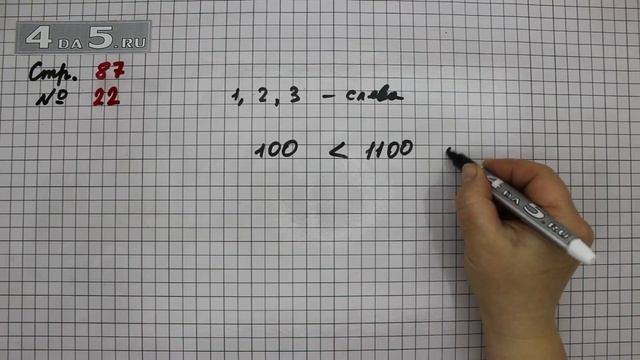 4 DA 5.RU
Стр. 87
№ 22
1, 2, 3 – слева
100 < 1100
4 DA 5.RU